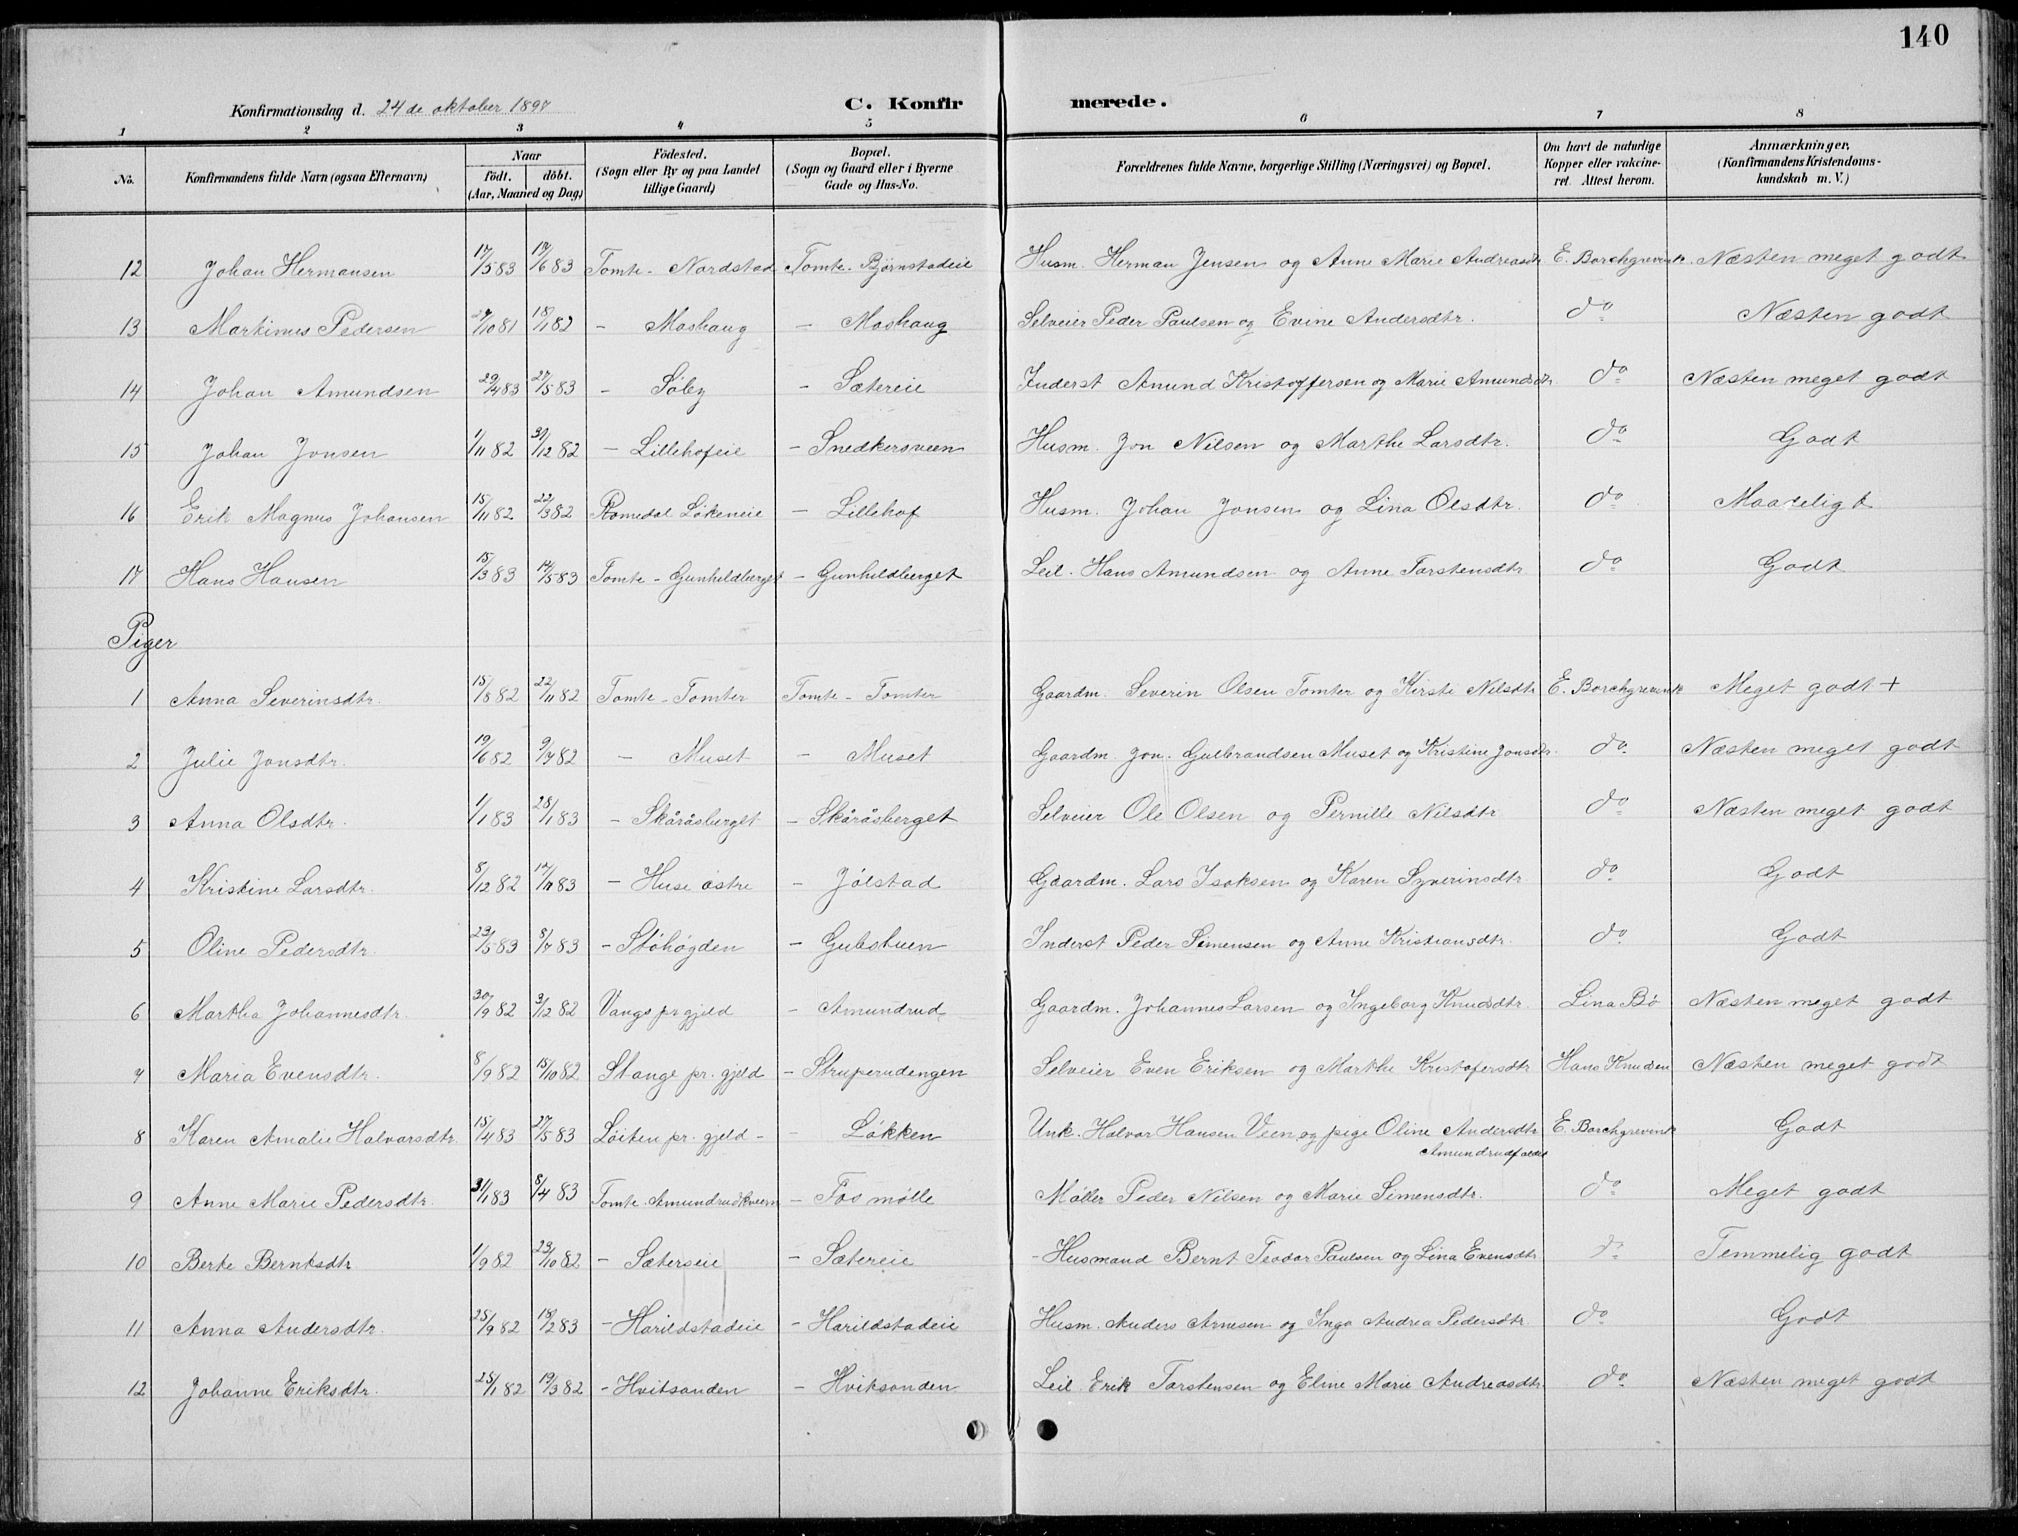 140
Konfirmationsdag d. 24de oktober 1897 C. Konfirmerede.
1 2 3 4 5 6 7 8
No. Konfirmandens fulde Navn (ogsaa Efternavn) Naar födt. döbt. (Aar, Maaned og Dag) Födested. (Sogn eller By og paa Landet tillige Gaard) Bopæl. (Sogn og Gaard eller i Byerne Gade og Hus-No. Forældrenes fulde Navne, borgerlige Stilling (Næringsvei) og Bopæl. Om havt de naturlige Kopper eller vakcineret. Attest herom. Anmærkninger, (Konfirmandens Kristendomskundskab m. V.)
12 Johan Hermansen 17/5 83 17/6 83 Tomte - Nordstad Tomte - Bjørnstadeie Husm. Herman Jensen og Anne Marie Andreasdtr E. Borchgrevink. Næsten meget godt
13 Martinus Pedersen 27/10 81 18/1 82 - Moshaug - Moshaug Selveier Peder Paulsen og Evine Andersdtr. do Næsten godt
14 Johan Amundsen 29/4 83 27/5 83 - Söby - Sætereie Inderst Amund Kristoffersen og Marie Amundsdtr do Næsten meget godt
15 Johan Jonsen 1/11 82 31/12 82 - Lillehofeie - Snedkersveen Husm. Jon Nilsen og Marthe Larsdtr. do Godt
16 Erik Magnus Johansen 15/11 82 22/3 82 Romedal Lökeneie - Lillehof Husm. Johan Jonsen og Lina Olsdtr. do Maadeligt
17 Hans Hansen 15/3 83 14/5 83 Tomte - Gunhildberget - Gunhildberget Leil. Hans Amundsen og Anne Torstensdtr do Godt
Piger
1 Anna Severinsdtr. 15/8 82 22/11 82 Tomte - Tomter Tomte - Tomter Gaardm. Severin Olsen Tomter og Kirsti Nilsdtr E. Borchgrevink Meget godt +
2 Julie Jonsdtr. 19/6 82 9/7 82 - Muset - Muset Gaardm. Jon Gulbrandsen Muset og Kristine Jonsdtr. do Næsten meget godt
3 Anna Olsdtr. 1/1 83 28/1 83 - Skåråsberget - Skåråsberget Selveier Ole Olsen og Pernille Nilsdtr do Næsten meget godt
4 Kristine Larsdtr. 8/12 82 17/ 83 - Huse östre - Jölstad Gaardm. Lars Isaksen og Karen Syverinsdtr do Godt
5 Oline Pedersdtr. 23/5 83 8/7 83 - Stöhögden - Gubstuen Inderst Peder Simensen og Anne Kristiansdtr. do Godt
6 Martha Johannesdtr. 30/9 82 3/12 82 Vangs prgjeld - Amundrud Gaardm. Johannes Larsen og Ingeborg Knudsdtr. Lina Bö Næsten meget godt
7 Maria Evensdtr. 8/9 82 15/10 82 Stange pr. gjeld - Struperudengen Selveier Even Eriksen og Marthe Kristofersdtr Hans Knudsen Næsten meget godt
8 Karen Amalie Halvorsdtr. 15/4 83 27/5 83 Löiten pr. gjeld - - Løkken Unk. Halvor Hansen Veen og pige Oline Andersdtr E. Borchgrevink Godt
Amundrudfaldet
9 Anne Marie Pedersdtr. 31/1 83 8/4 83 Tomte. Amundrudkvern - Fosmölle Møller Peder Nilsen og Marie Simensdtr. do Meget godt
10 Berte Berntsdtr 1/9 82 23/10 82 - Sæterseie - Sætereie - Husmand Bernt Teodor Paulsen og Lina Evensdtr do Temmelig godt
11 Anna Andersdtr. 25/9 82 18/2 83 - Harildstadeie - Harildstadeie Husm. Anders Arnesen og Inga Andrea Pedersdtr do Godt
12 Johanne Eriksdtr. 25/1 82 19/3 82 - Hvitsanden - Hvitsanden Leil. Erik Torstensen og Eline Marie Andreasdtr. do Næsten meget godt